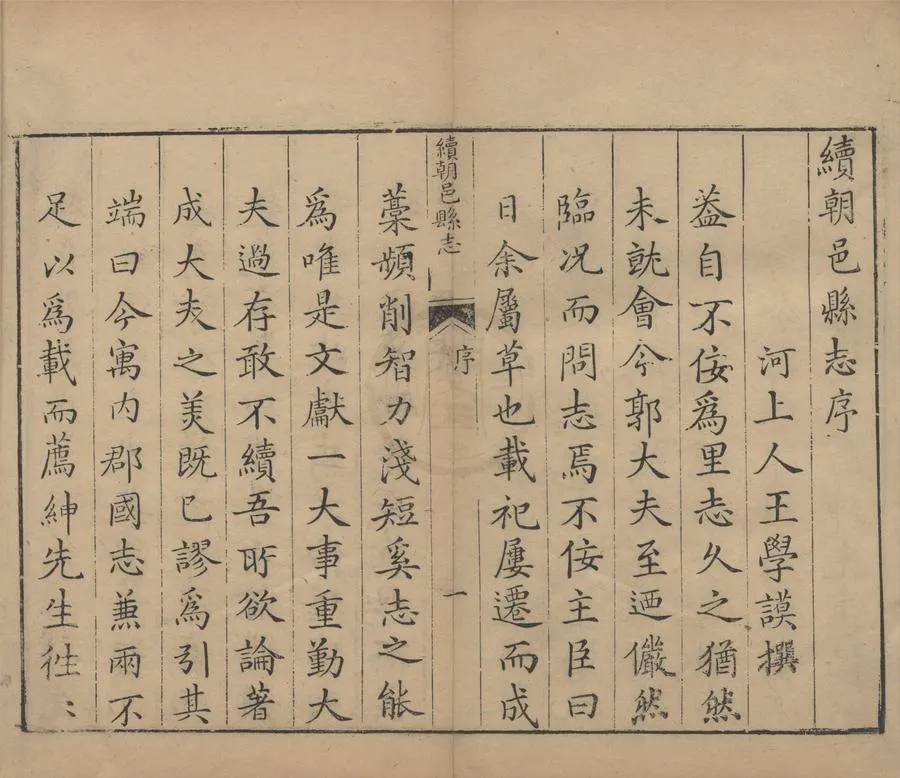 續朝邑縣志序
河上人王學謨撰
葢自不佞爲里志久之猶然
未就會今郭大夫至迺儼然
臨况而問志焉不佞主臣曰
日余屬草也載祀屢遷而成
續朝邑縣志 序 一
藁頻削智力淺短奚志之能
爲唯是文獻一大事重勤大
夫過存敢不續吾所欲論著
成大夫之美既已謬爲引其
端曰今寓内郡國志兼兩不
足以爲載而薦紳先生徃〻